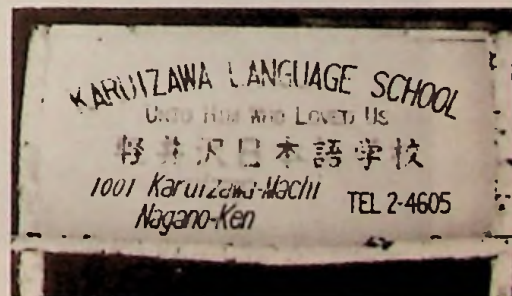 KARUIZAWA LANGUAGE SCHOOL
UNTO HIM WHO LOVED US
軽井沢日本語学校
1001 Karuizawa-Machi
Nagano-Ken
TEL 2-4605